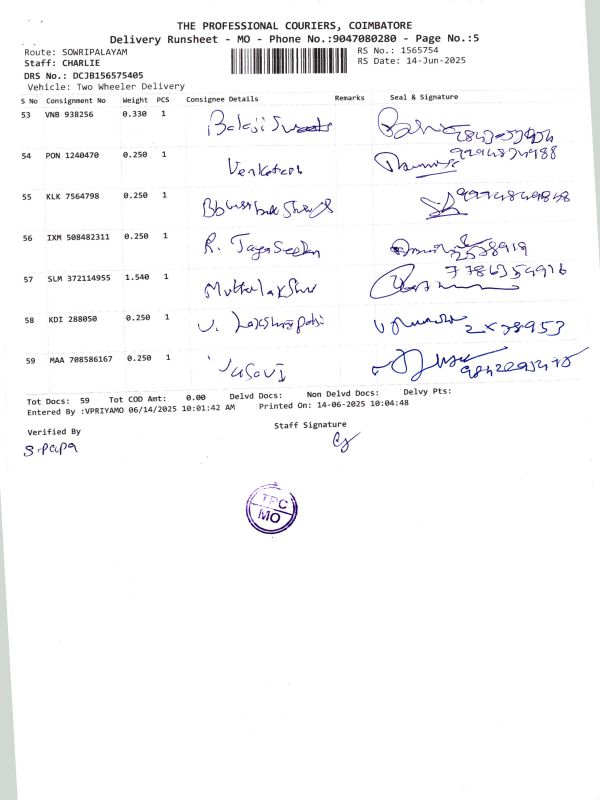 THE PROFESSIONAL COURIERS, COIMBATORE
Delivery Runsheet - MO - Phone No.:9047080280 - Page No.:5
Route: SOWRIPALAYAM RS No.: 1565754
Staff: CHARLIE RS Date: 14-Jun-2025
DRS No.: DCJB156575405
Vehicle: Two Wheeler Delivery
S No Consignment No Weight PCS Consignee Details Remarks Seal & Signature
53 VNB 938256 0.330 1 Balaji Sweets
54 PON 1240470 0.250 1 Venkatesh
55 KLK 7564798 0.250 1
56 IXM 508482311 0.250 1 R.
57 SLM 372114955 1.540 1
58 KDI 288050 0.250 1 V.
59 MAA 708586167 0.250 1 Vasavi
Tot Docs: 59 Tot COD Amt: 0.00 Delvd Docs: Non Delvd Docs: Delvy Pts:
Entered By :VPRIYAMO 06/14/2025 10:01:42 AM Printed On: 14-06-2025 10:04:48
Verified By Staff Signature
S.Papa
TPC
MO